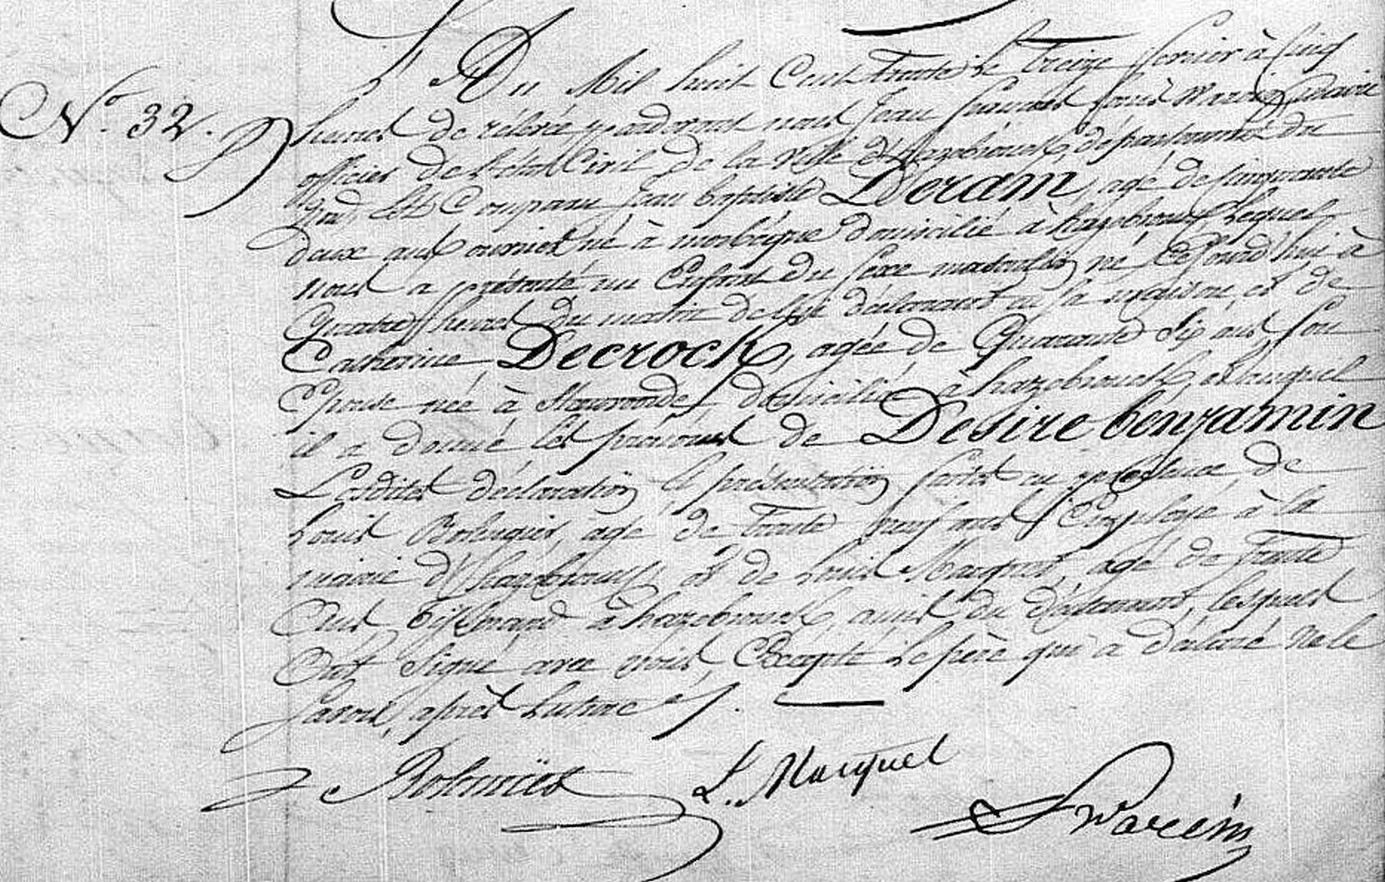 N.° 32.
L'An Mil huit Cent trente le treize fevrier à Cinq
heures de relevée pardevant nous Jean
officier de l'état Civil de la ville d'hazebrouck, département du
Nord, Est Comparu Jean baptiste Deram, agé de Cinquante
deux ans ouvrier né à morbecque domicilié à hazebrouck lequel
nous a présenté un Enfant du sexe masculin né Cejourd'hui à
Quatre heures du matin de lui déclarant en sa maison, et de
Catherine Decrock, agée de Quarante Six ans, son
Epouse née à domiciliée à hazebrouck, et auquel
il a donné les prénoms de Desire benjamin
Lesdites déclaration et présentation faites en présence de
Louis agé de trente neuf ans Employé à la
mairie d'hazebrouck et de Louis Marquet, agé de trente
ans tisserand à hazebrouck amis du déclarant, lesquels
Ont Signé avec nous, Excepté le père qui a déclaré ne le
Savoir, après lecture
L. Marquet